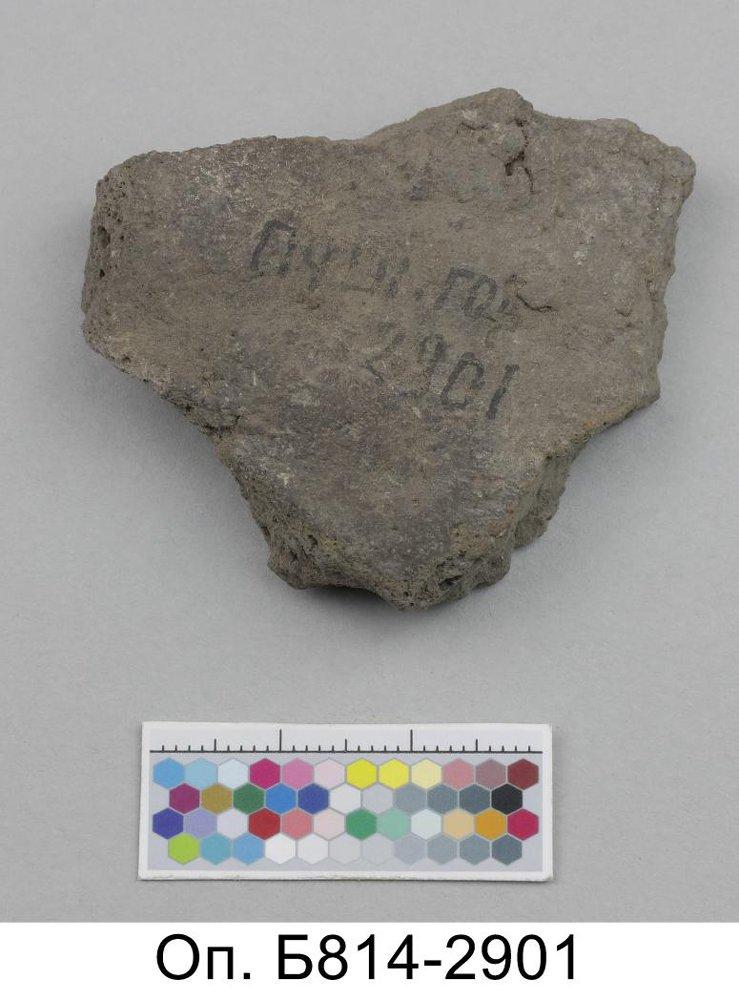 Душ. гор
2901
Оп. Б814-2901